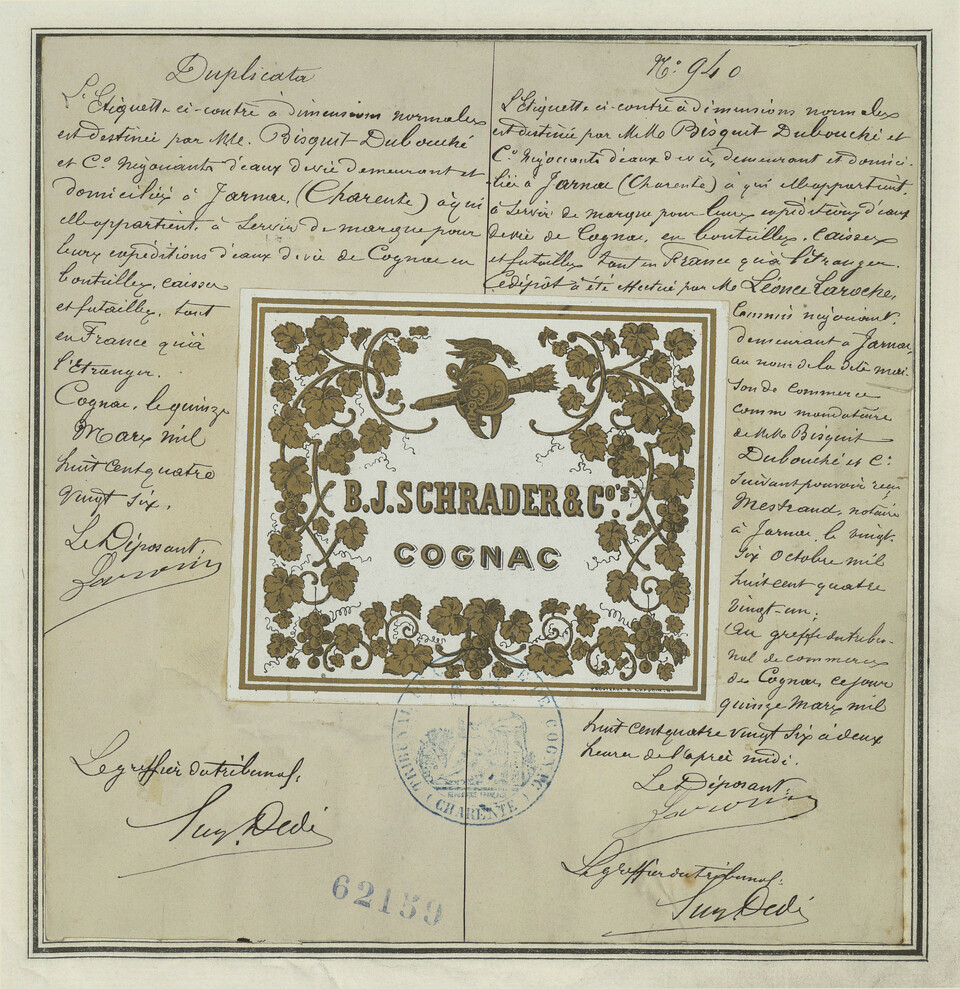 Duplicata
L'Etiquette ci-contre à dimensions normales
est destinée par MM. Bisquit Dubouché
et Cº Négociants d'eaux de vie demeurant et
domiciliés à Jarnac, (Charente) à qui
elle appartient, à servir de marque pour
leurs expéditions d'eaux de vie de Cognac en
bouteilles, caisses
et futailles, tant
en France qu'à
l'Etranger.
Cognac, le quinze
Mars mil
huit cent quatre
vingt six.
Le Déposant
Le greffier du tribunal:
62159
Nº 940
L'Etiquette ci-contre à dimensions normales
est destinée par MM. Bisquit Dubouché et
Cº Négociants d'eaux de vie, demeurant et domici-
-liés à Jarnac (Charente) à qui elle appartient,
à servir de marque pour leurs expéditions d'eaux
de vie de Cognac, en bouteilles, caisses
et futailles tant en France qu'à l'étranger.
Ce dépôt a été effectué par M. Léonce Laroche,
Commis négociant,
demeurant à Jarnac,
au nom de la dite mai-
son de commerce
comme mandataire
de MM. Bisquit
Dubouché et Cº
suivant pouvoir reçu
Mestraud, notaire
à Jarnac, le vingt-
six Octobre mil
huit cent quatre
vingt-un;
Au greffe du tribu-
nal de commerce
de Cognac, ce jour
quinze Mars mil
huit cent quatre vingt six à deux
heures de l'après midi.
Le Déposant:
Le greffier du tribunal:
B.J.SCHRADER & Cº'S
COGNAC
TRIBUNAL DE COGNAC
(CHARENTE)